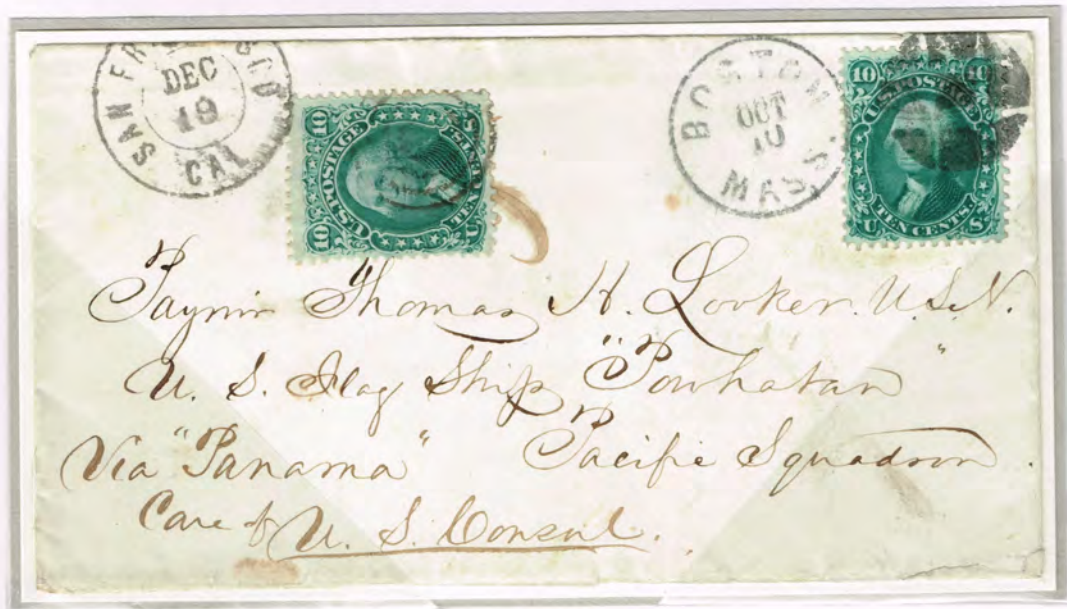 SAN FRANCISCO
DEC
19
CAL
10 10
U.S. POSTAGE
TEN CENTS.
U S
BOSTON
OCT
10
MASS.
10 10
U.S. POSTAGE
TEN CENTS.
U S
Paymr Thomas H. Looker. U.S.N.
U. S. Flag Ship "Powhatan"
Via "Panama" Pacific Squadron.
Care of U. S. Consul.